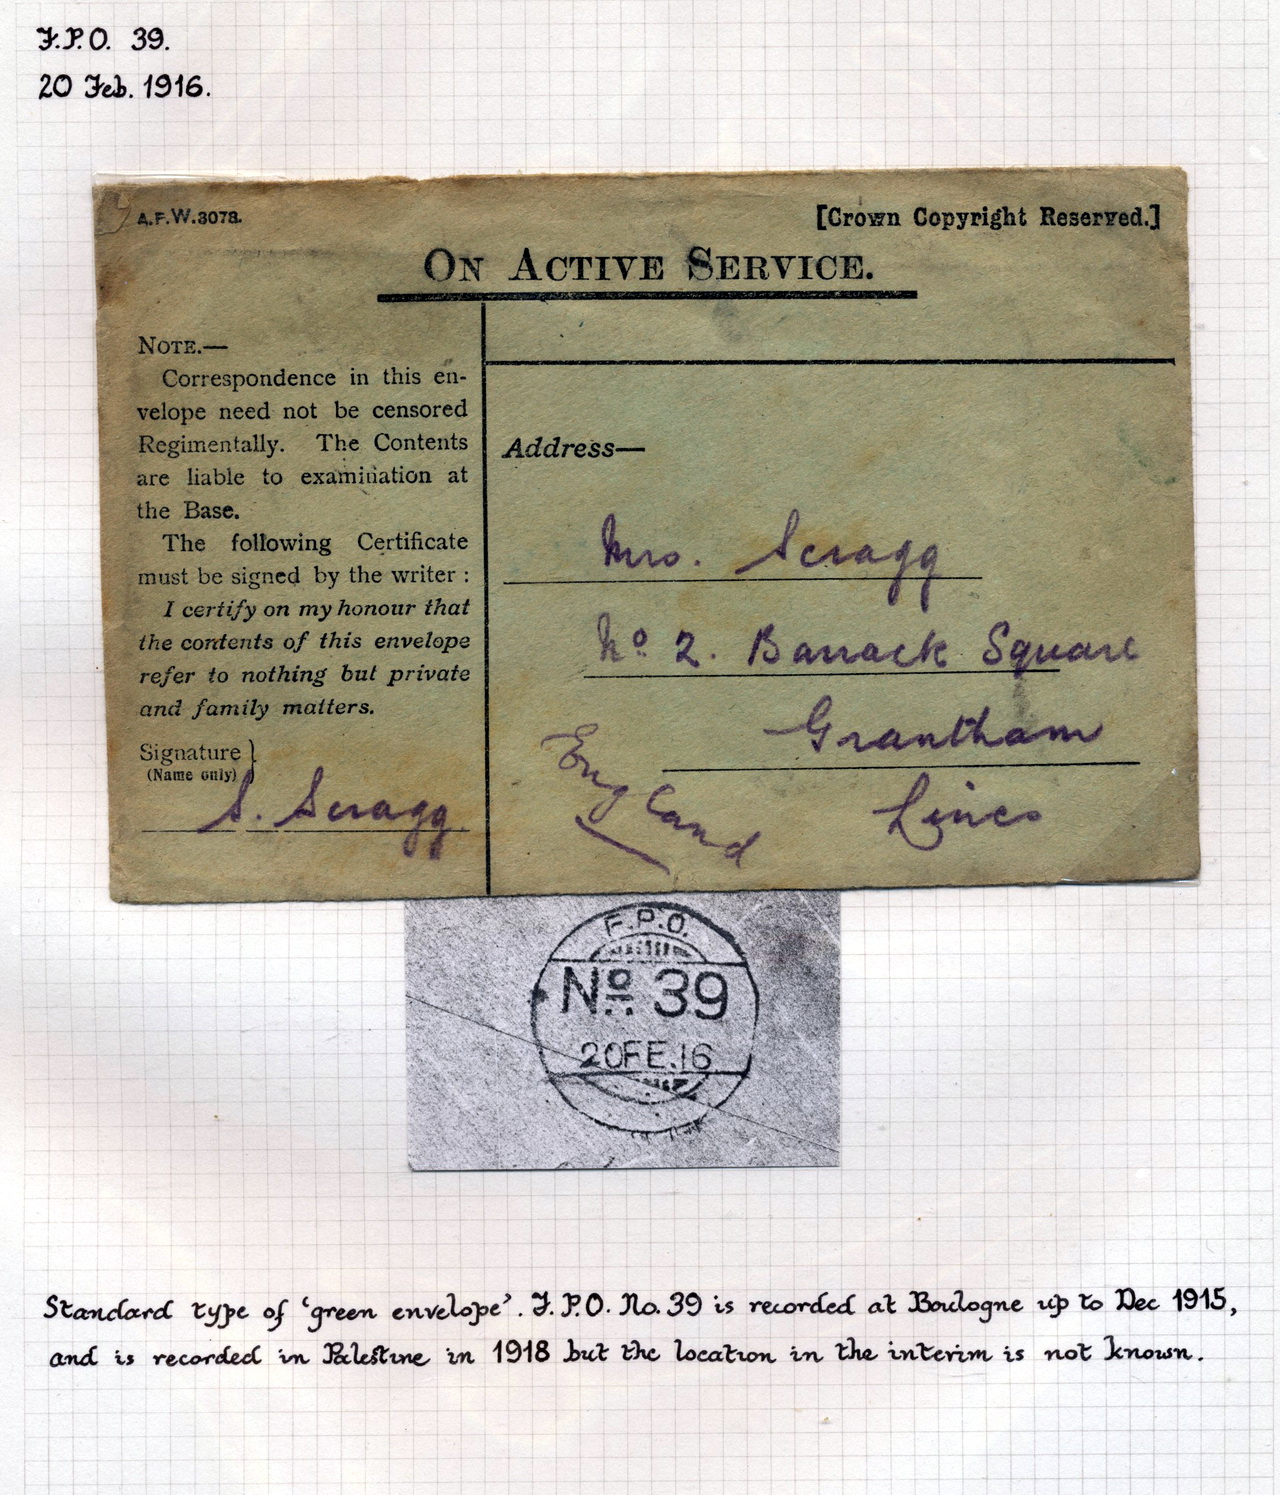 F.P.O. 39.
20 Feb. 1916.
A.F.W.3078.
[Crown Copyright Reserved.]
ON ACTIVE SERVICE.
NOTE.—
Correspondence in this en-
velope need not be censored
Regimentally. The Contents
are liable to examination at
the Base.
The following Certificate
must be signed by the writer :
I certify on my honour that
the contents of this envelope
refer to nothing but private
and family matters.
Signature }
(Name only)
S. Scragg
Address—
Mrs. Scragg
No 2. Barrack Square
Grantham
Lincs
England
F.P.O.
No 39
20FE.16
Standard type of ‘green envelope’. F.P.O. No. 39 is recorded at Boulogne up to Dec 1915,
and is recorded in Palestine in 1918 but the location in the interim is not known.